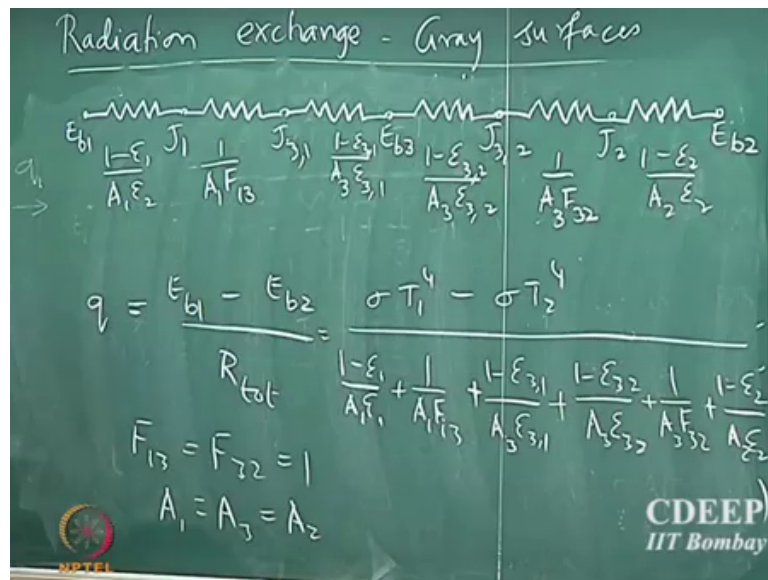 Radiation exchange - Gray surfaces
E_b1 J_1 J_3,1 E_b3 J_3,2 J_2 E_b2
q_1 → (1-ε_1)/(A_1ε_2) 1/(A_1F_13) (1-ε_3,1)/(A_3ε_3,1) (1-ε_3,2)/(A_3ε_3,2) 1/(A_3F_32) (1-ε_2)/(A_2ε_2)
q = (E_b1 - E_b2)/R_tot = (σT_1^4 - σT_2^4)/((1-ε_1)/(A_1ε_1) + 1/(A_1F_13) + (1-ε_3,1)/(A_3ε_3,1) + (1-ε_32)/(A_3ε_32) + 1/(A_3F_32) + (1-ε_2)/(A_2ε_2))
F_13 = F_32 = 1
A_1 = A_3 = A_2
CDEEP
IIT Bombay
NPTEL